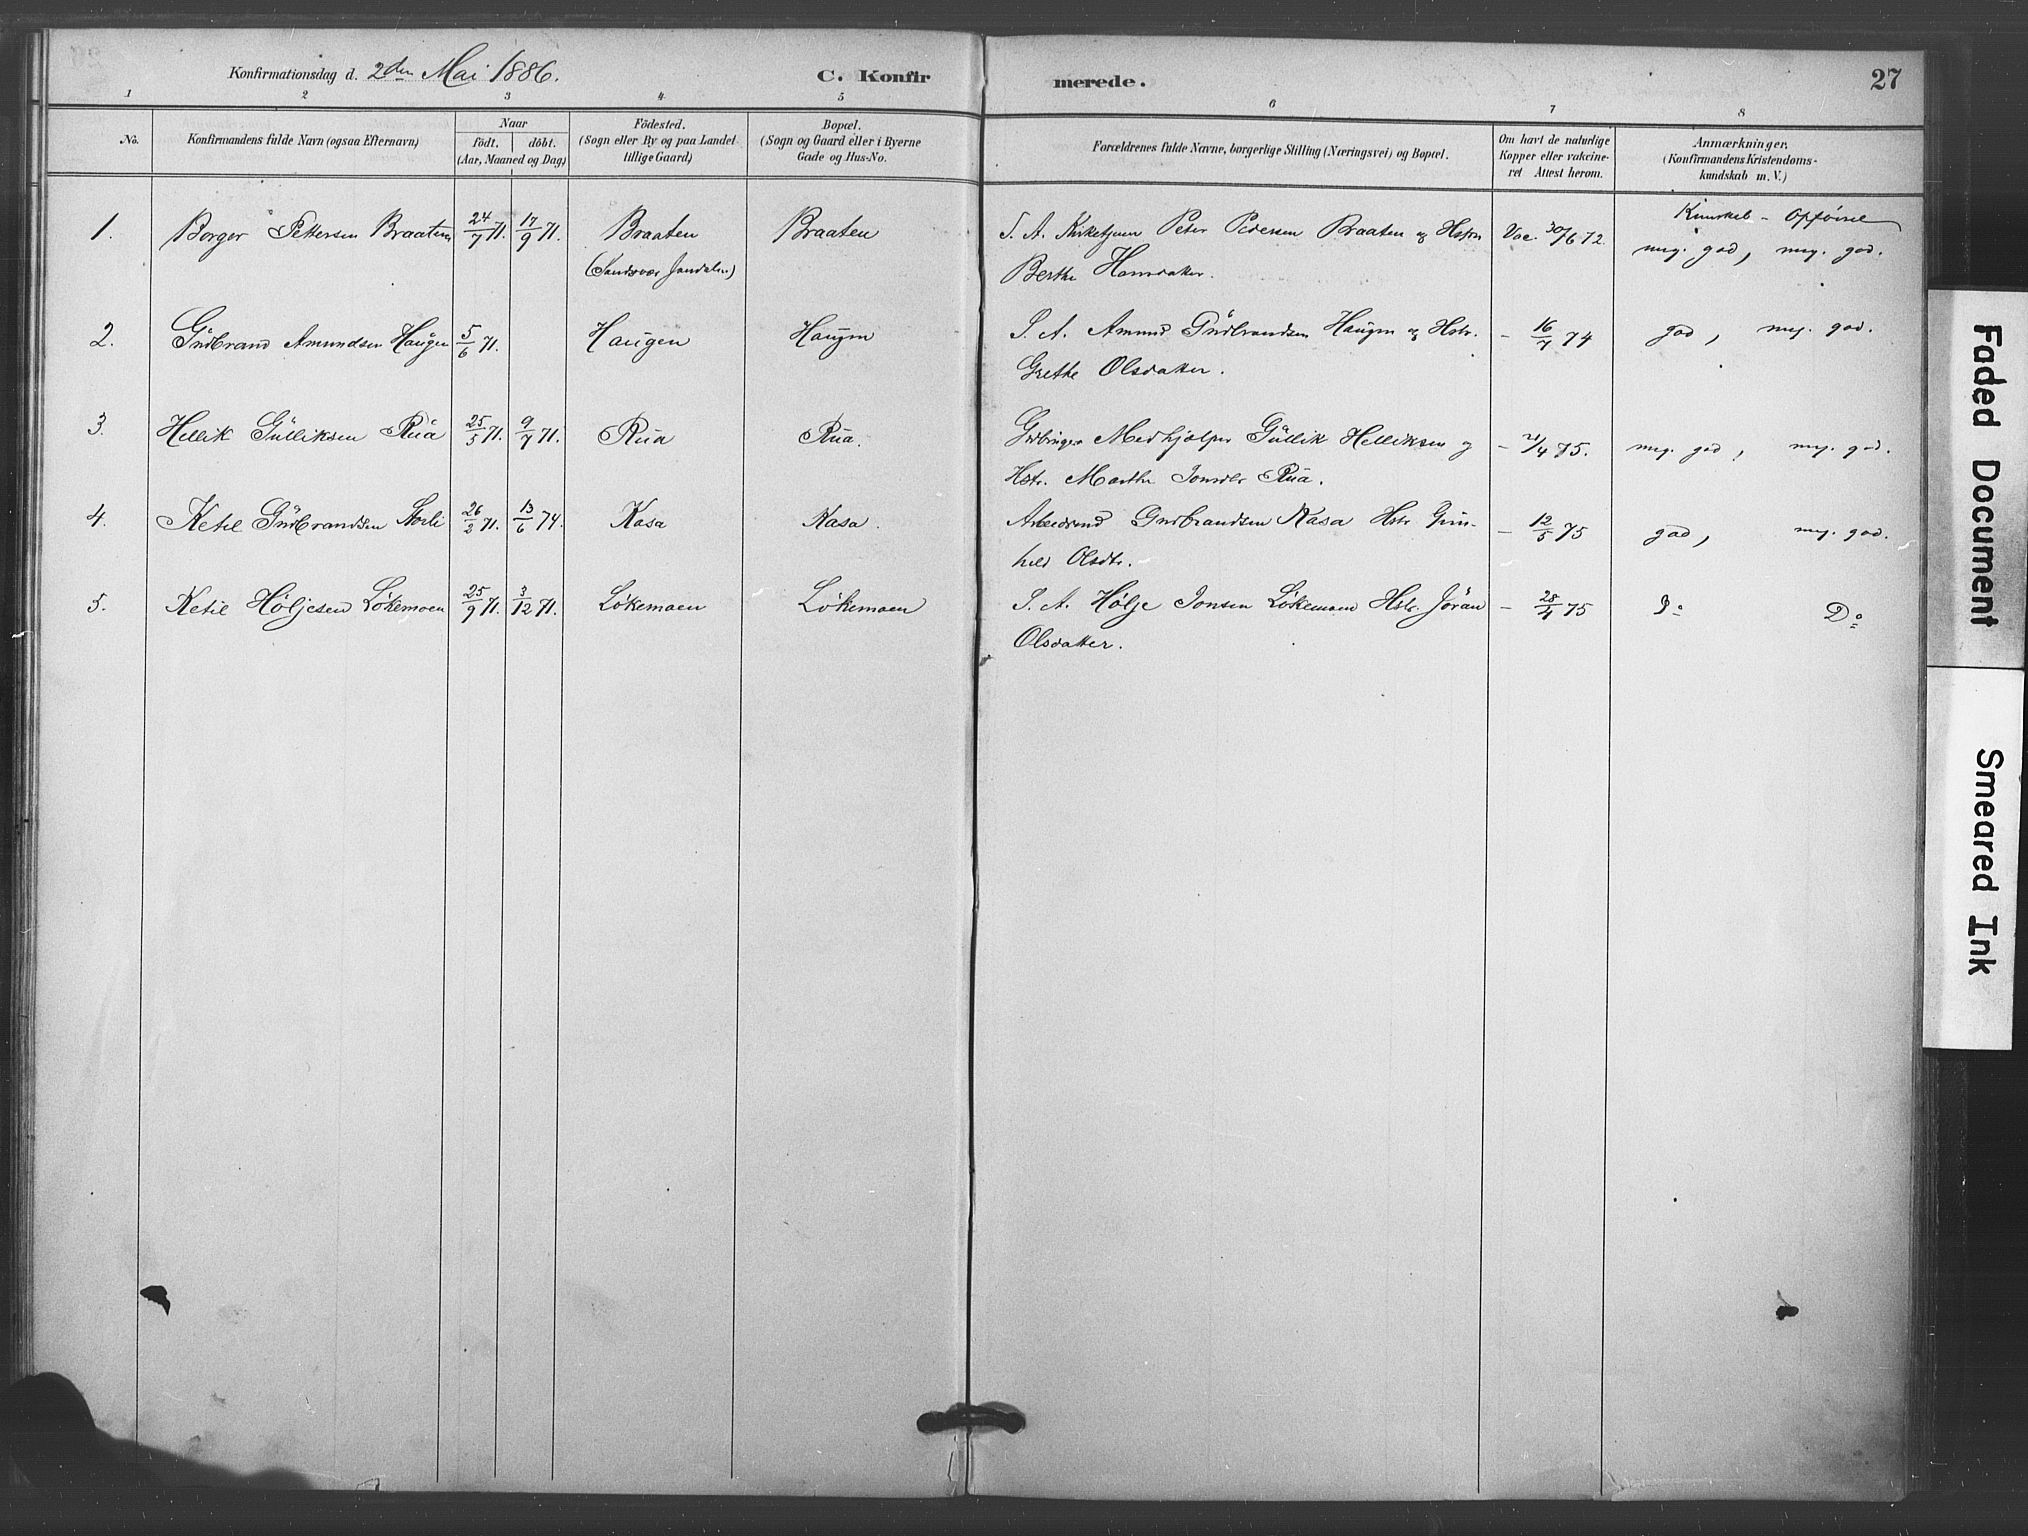 Konfirmationsdag d. 2den Mai 1886. C. Konfirmerede. 27
1 2 3 4 5 6 7 8
No. Konfirmandens fulde Navn (ogsaa Efternavn) Naar født. døbt. (Aar, Maaned og Dag) Födested. (Sogn eller By og paa Landet tillige Gaard) Bopæl. (Sogn og Gaard eller i Byerne Gade og Hus-No. Forældrenes fulde Navne, borgerlige Stilling (Næringsvei) og Bopæl. Om havt de naturlige Kopper eller vakcineret Attest herom. Anmærkninger, (Konfirmandens Kristendomskundskab m. V.)
Kundskab - Opførsel
1. Borger Pettersen Braaten 24/7 71. 17/9 71. Braaten Braaten S. A. Kirketjener Peter Pedersen Braaten og Hstru Vac. 30/6 72. meg. god, meg. god.
(Sandsvær Jondalen) Berthe Hansdatter.
2. Gudbrand Amundsen Haugen 5/6 71. Haugen Haugen S. A. Amund Gudbrandsen Haugen og Hstr. - 16/7 74 god, meg. god.
Grethe Olsdatter.
3. Hellik Gulliksen Rua 25/5 71. 9/7 71. Rua Rua. Gdbruger Medhjælper Gullik Helliksen og - 21/4 75. meg. god, meg. god.
Hstr. Marthe Jonsdtr Rua.
4. Ketil Gudbrandsen Storli 26/2 71. 13/6 74. Kasa Kasa. Arbeidsmd Gudbrandsen Kasa Hstr Gun- - 12/5 75 god, meg. god.
hild Olsdtr.
5. Ketil Høljesen Løkemoen 25/9 71. 3/12 71. Løkemoen Løkemoen S. A. Hølje Jonsen Løkemoen Hstr. Jøran - 28/4 75 Do Do
Olsdatter.
Faded Document
Smeared Ink